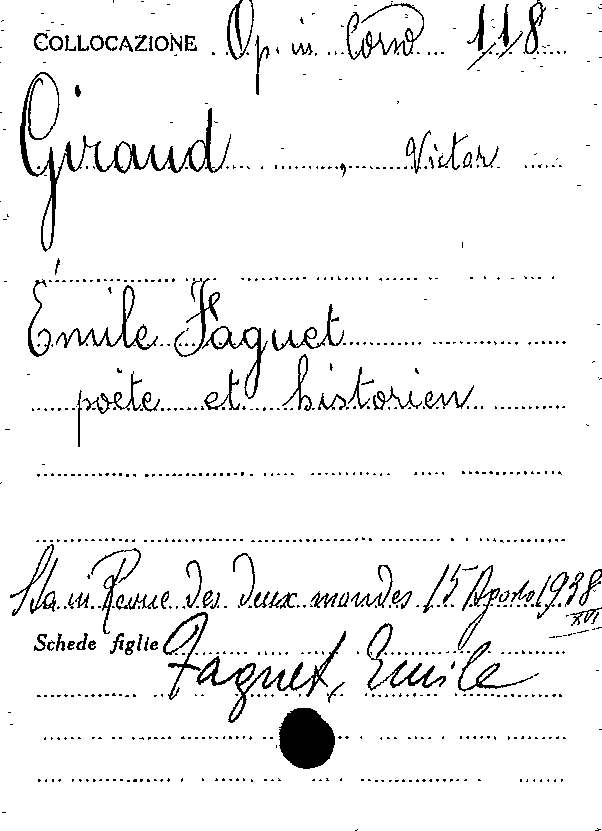 COLLOCAZIONE Op. in Corso 118
Giraud, Victor
Émile Faguet
poète et historien
Sta in Revue des deux mondes 15 Agosto 1938
XVI
Schede figlie
Faguet, Emile